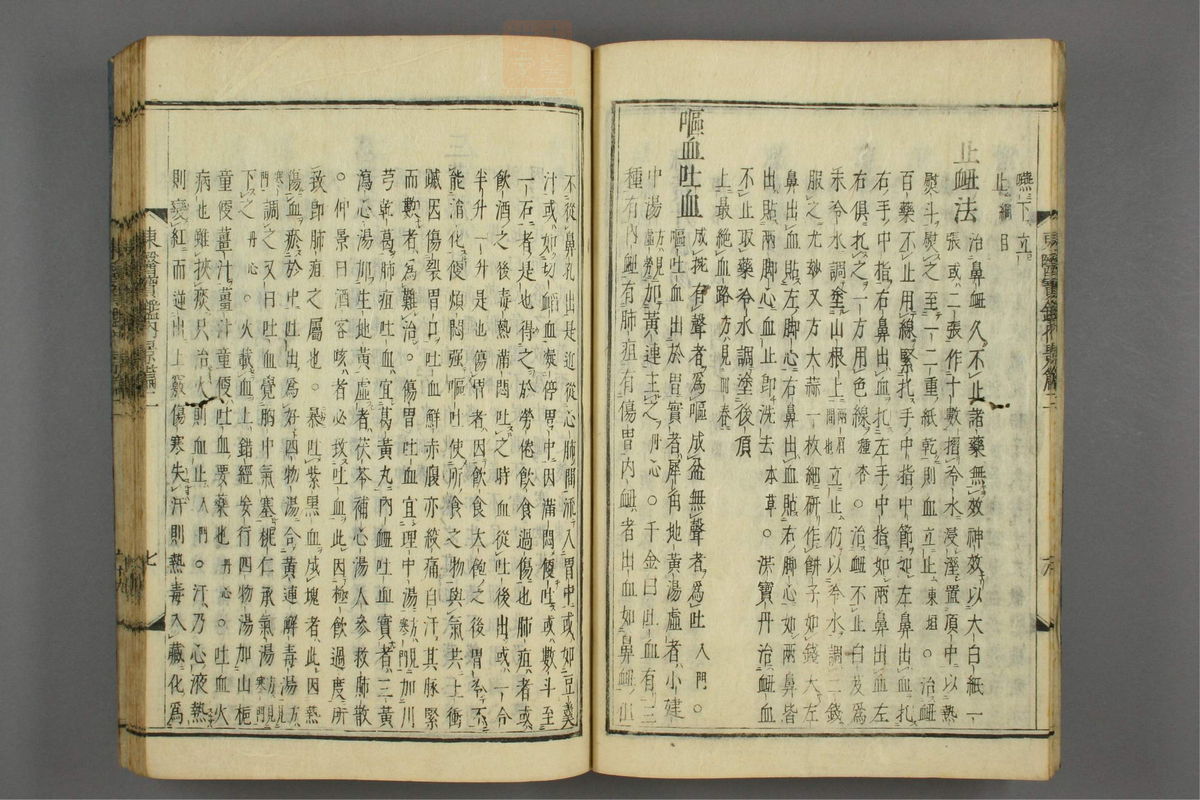 嚥下立
止綱目
止衄法 治鼻衄久不止諸藥無效神效以大白紙一
張或二張作十數摺冷水浸溼置頂中以熱
熨斗熨之至一二重紙乾則血立止東垣○治衄
百藥不止用線緊扎手中指中節如左鼻出血扎
右手中指右鼻出血扎左手中指如兩鼻出血左
右俱扎之一方用色線種杏○治衄不止白芨爲
末冷水調塗山根上兩眉間也立止仍以冷水調二錢
服之尤妙又方大蒜一枚細研作餠子如錢大左
鼻出血貼左脚心右鼻出血貼右脚心如兩鼻皆
出貼兩脚心血止卽洗去本草○洪寶丹治衄血
不止取藥冷水調塗後頂
上最絶血路方見回春
嘔血吐血 成椀有聲者爲嘔成盆無聲者爲吐入門○
嘔吐血出於胃實者犀角地黃湯虛者小建
中湯方見虛勞加黃連主之丹心○千金曰吐血有三
種有內衄有肺疽有傷胃內衄者出血如鼻衄但
不從鼻孔出是近從心肺間派入胃中或如豆羹
汁或如切䘓血凝停胃中因滿悶便吐或數斗至
一石者是也得之於勞倦飮食過傷也肺疽者或
飮酒之後毒熱滿悶吐之時血從吐後出或一合
半升一升是也傷胃者因飮食大飽之後胃冷不
能消化便煩悶强嘔吐使所食之物與氣共上衝
蹴因傷裂胃口吐血鮮赤腹亦絞痛自汗其脉緊
而數者爲難治○傷胃吐血宜理中湯方見寒門加川
芎乾葛肺疽吐血宜葛黃丸內衄吐血實者三黃
瀉心湯加生地黃虛者茯苓補心湯人參救肺散
○仲景曰酒客咳者必致吐血此因極飮過度所
致卽肺疽之屬也○暴吐紫黑血成塊者此因熱
傷血瘀於中吐出爲好四物湯合黃連解毒湯方見
寒門調之又曰吐血覺胸中氣塞桃仁承氣湯方見寒門
下之丹心○火載血上錯經妄行四物湯加山梔
童便薑汁薑汁童便吐血要藥也丹心○吐血火
病也雖挾痰只治火則血止入門○汗乃心液熱
則變紅而逆出上竅傷寒失汗則熱毒入藏化爲
東醫寶鑑內景篇二
七